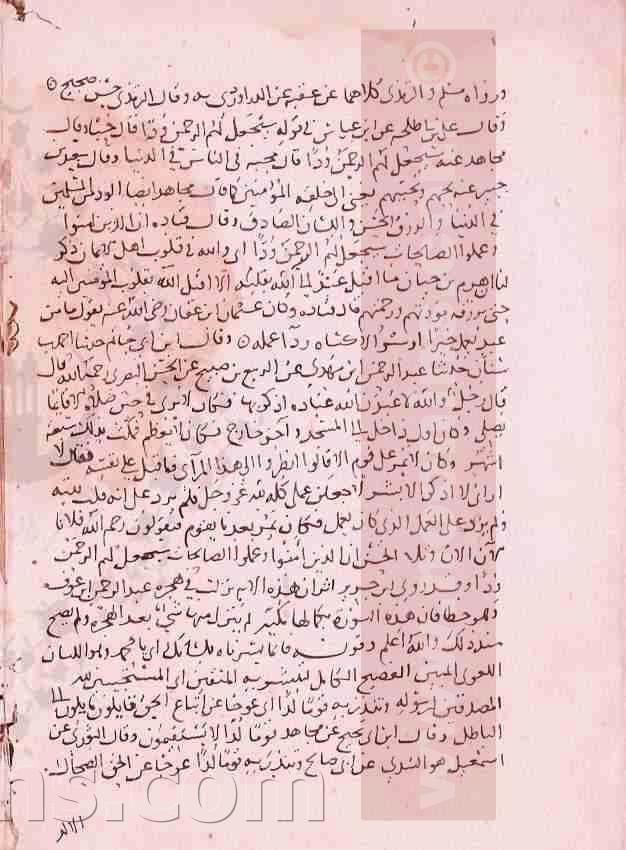 ورواه مسلم والترمذي كلاهما عن قتيبة عن الدراوردي به وقال الترمذي حسن صحيح
وقال علي بن ابي طلحة عن ابن عباس في قوله سيجعل لهم الرحمن ودا قال حبا وقال
مجاهد عنه سيجعل لهم الرحمن ودا قال محبة في الناس في الدنيا وقال سعيد بن
جبير عنه يحبهم ويحببهم يعني الى خلقه المؤمنين كما قال مجاهد ايضا الود من المسلمين
في الدنيا والرزق الحسن واللسان الصادق وقال قتادة ان الذين امنوا
وعملوا الصالحات سيجعل لهم الرحمن ودا اي والله في قلوب اهل الايمان ذكر
لنا ان هرم بن حيان ما اقبل عبد الى الله بقلبه الا اقبل الله بقلوب المؤمنين اليه
حتى يرزقه مودتهم ورحمتهم قال قتادة وكان عثمان ابن عفان رضي الله عنه يقول ما من
عبد يعمل خيرا او شرا الا كساه رداء عمله وقال ابن ابي حاتم حدثنا احمد بن
سنان حدثنا عبد الرحمن ابن مهدي عن الربيع بن صبيح عن الحسن البصري رحمه الله قال
قال رجل والله لاعبدن الله عبادة اذكر بها فكان لا يرى في حين صلاة الا قائما
يصلي وكان اول داخل الى المسجد واخر خارج فكان لا يعظم فمكث بذلك سبعة
اشهر وكان لا يمر على قوم الا قالوا انظروا الى هذا المرائي فاقبل على نفسه فقال لا
اراني لا اذكر الا بشر لاجعلن عملي كله لله عز وجل فلم يزد على انه قلب نيته
ولم يزد على العمل الذي كان يعمل فكان يمر بعد بالقوم فيقولون رحم الله فلانا
الان وتلا الحسن ان الذين امنوا وعملوا الصالحات سيجعل لهم الرحمن
ودا وقد روى ابن جرير اثرا ان هذه الاية نزلت في هجرة عبد الرحمن ابن عوف
وهو خطا فان هذه السورة بكمالها مكية لم ينزل منها شيء بعد الهجرة ولم يصح
سند ذلك والله اعلم وقوله فانما يسرناه بلسانك اي يا محمد وهو اللسان
العربي المبين الفصيح الكامل لتبشر به المتقين اي المستجيبين لله
المصدقين لرسوله وتنذر به قوما لدا اي عوجا عن اتباع الحق مائلون الى
الباطل وقال ابن ابي نجيح عن مجاهد قوما لدا لا يستقيمون وقال الثوري عن
اسمعيل هو السدي عن ابي صالح وتنذر به قوما لدا عوجا عن الحق الضحاك
الالد
ns.com